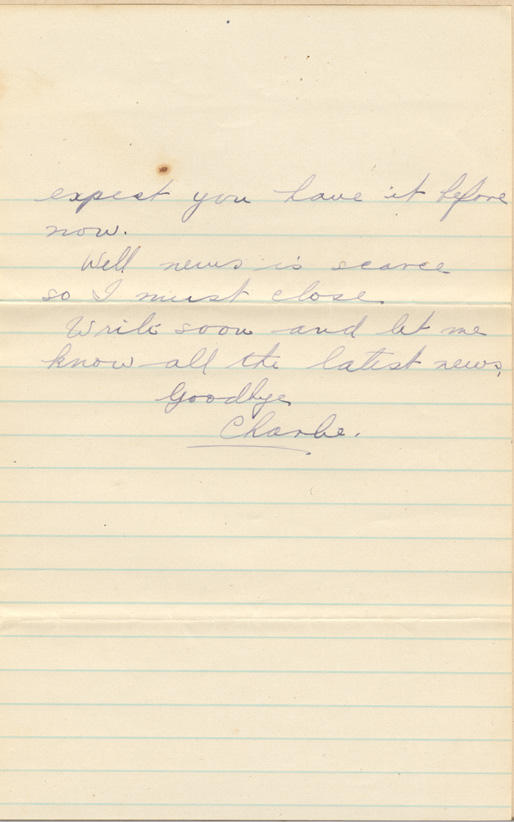 expect you have it before
now.
Well news is scarce
so I must close.
Write soon and let me
know all the latest news,
Goodbye
Charlie.